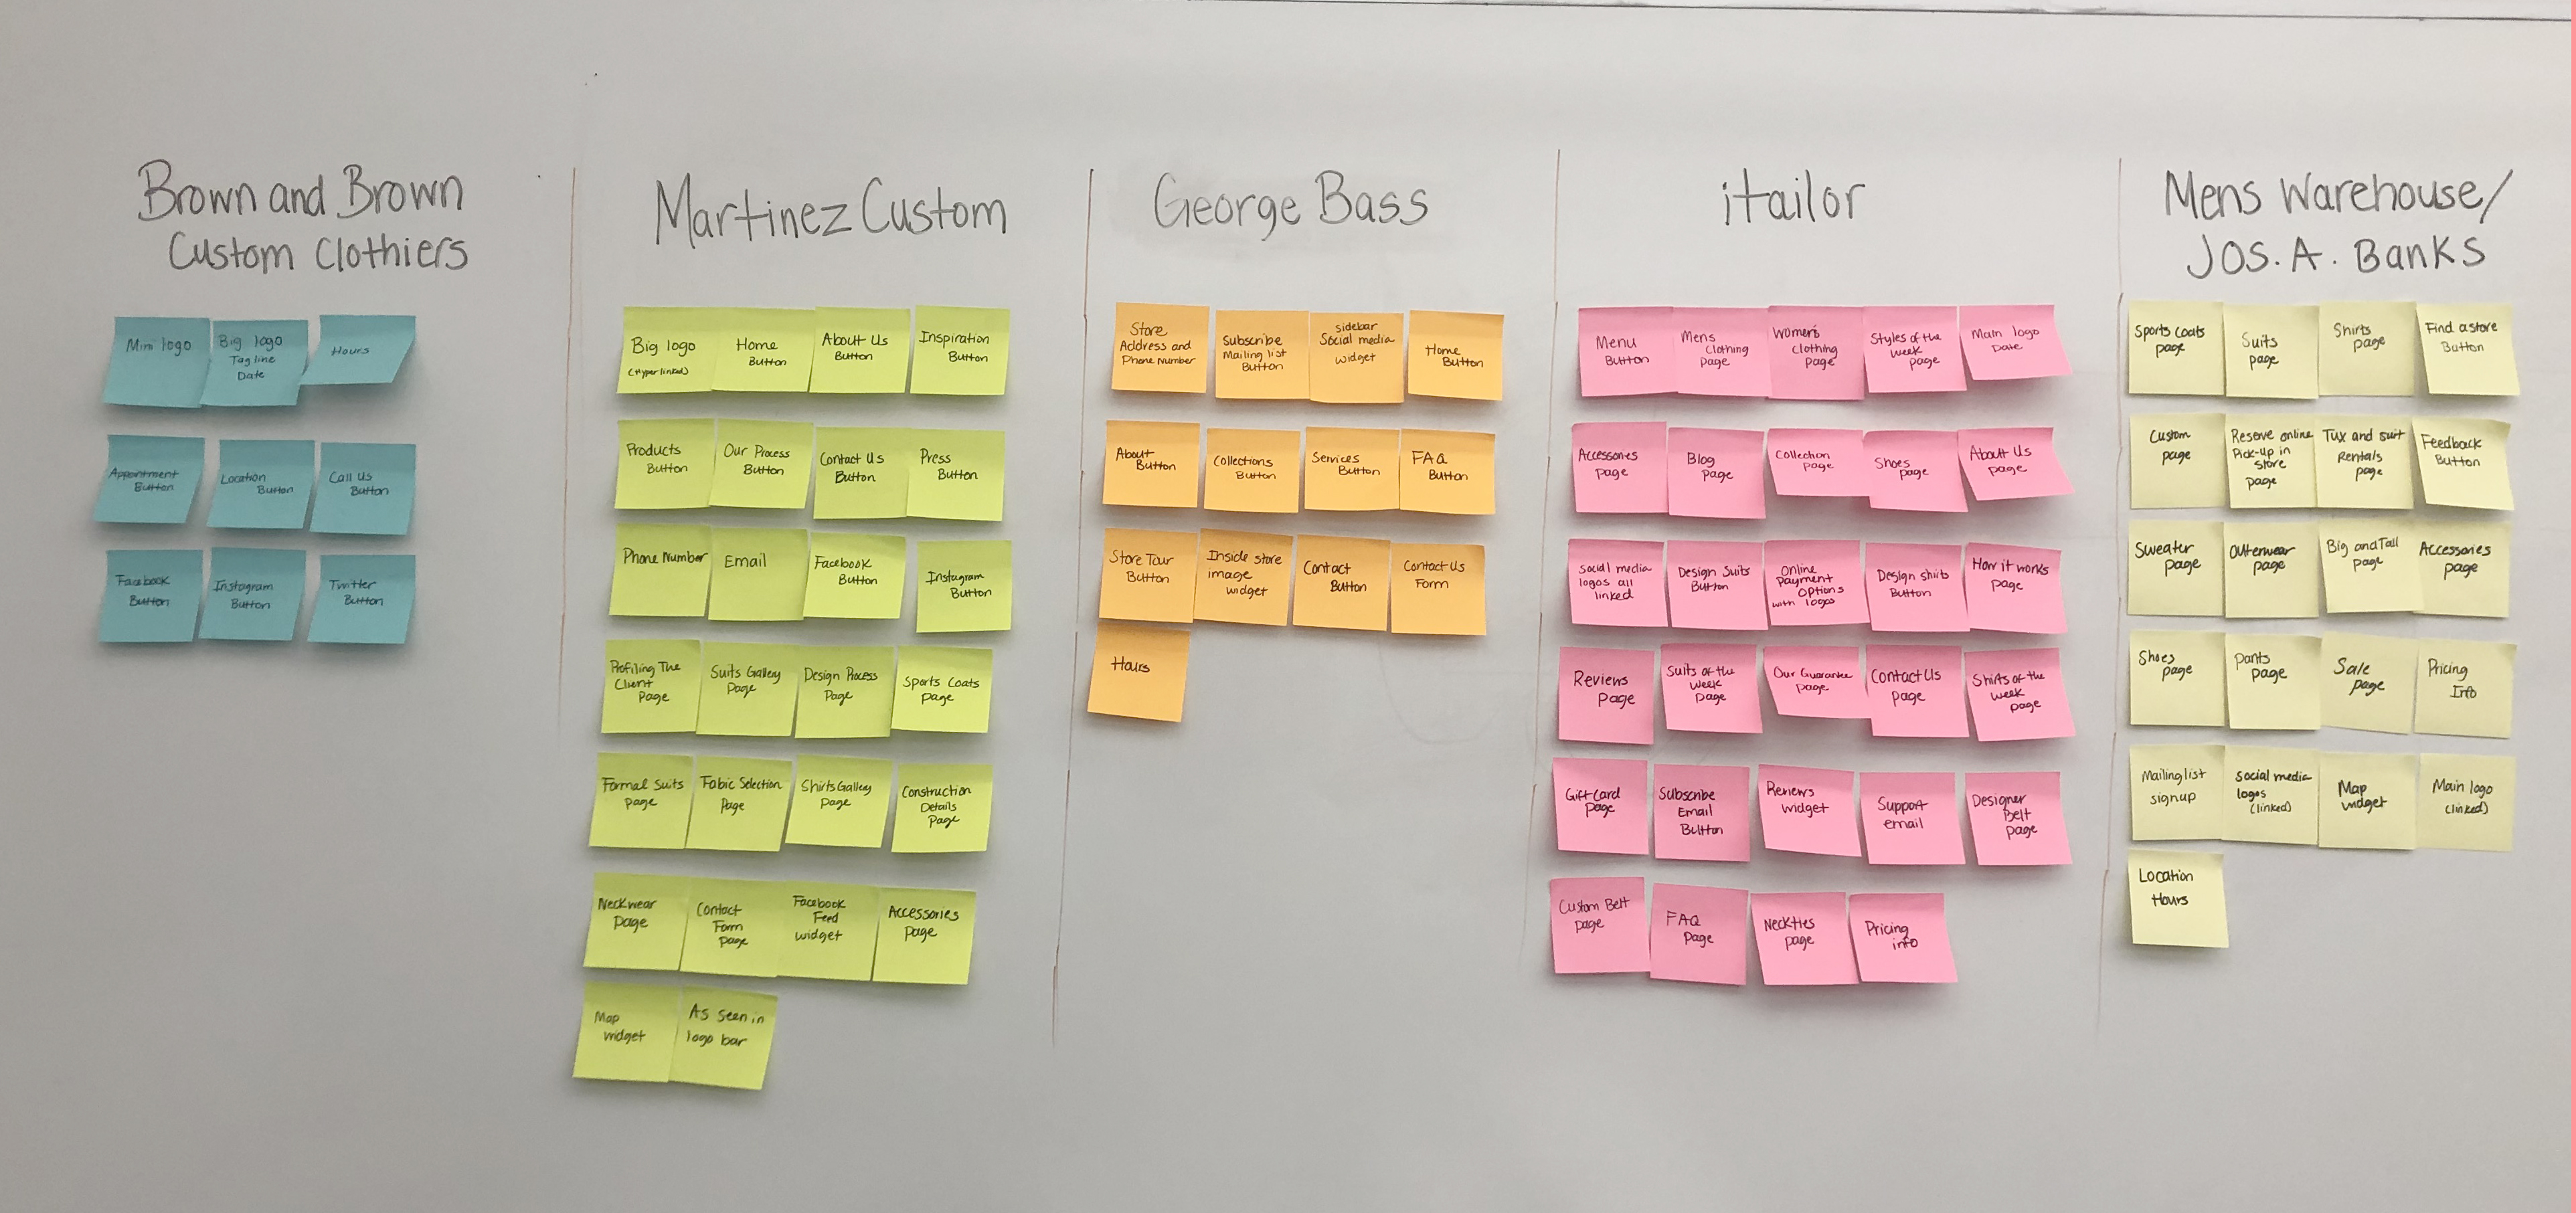 Brown and Brown
Custom Clothiers
Mini logo
Big logo
Tag line
Date
Hours
Appointment
Button
Location
Button
Call Us
Button
Facebook
Button
Instagram
Button
Twitter
Button
Martinez Custom
Big logo
(Hyperlinked)
Home
Button
About Us
Button
Inspiration
Button
Products
Button
Our Process
Button
Contact Us
Button
Press
Button
Phone Number
Email
Facebook
Button
Instagram
Button
Profiling The
Client
Page
Suits Gallery
Page
Design Process
Page
Sports Coats
page
Formal Suits
page
Fabic Selection
Page
Shirts Gallery
page
Construction
Details
Page
Neckwear
Page
Contact
Form
page
Facebook
Feed
widget
Accessories
Page
Map
widget
As seen in
logo bar
George Bass
Store
Address and
Phone Number
Subscribe
Mailing list
Button
sidebar
Social media
widget
Home
Button
About
Button
Collections
Button
Services
Button
FAQ
Button
Store Tour
Button
Inside store
image
widget
Contact
Button
Contact Us
Form
Hours
itailor
Menu
Button
Mens
Clothing
page
Women's
Clothing
page
Styles of the
week
page
Main logo
Date
Accessories
page
Blog
Page
Collection
page
Shoes
page
About Us
page
Social media
logos all
linked
Design Suits
Button
Online
Payment
Options
with logos
Design shirts
Button
How it works
page
Reviews
Page
Suits of the
week
page
Our Guarantee
page
Contact Us
page
Shirts of the
week
page
Gift Card
page
Subscribe
Email
Button
Reviews
widget
Support
email
Designer
Belt
page
Custom Belt
page
FAQ
Page
Neckties
page
Pricing
info
Mens Warehouse/
Jos. A. Banks
Sports Coats
page
Suits
page
Shirts
page
Find a store
Button
Custom
page
Reserve online
Pick-up in
store
page
Tux and suit
Rentals
page
Feedback
Button
Sweater
page
Outerwear
page
Big and Tall
page
Accessories
page
Shoes
page
pants
page
Sale
page
Pricing
Info
Mailing list
signup
Social media
logos
(linked)
Map
widget
Main logo
(linked)
Location
Hours